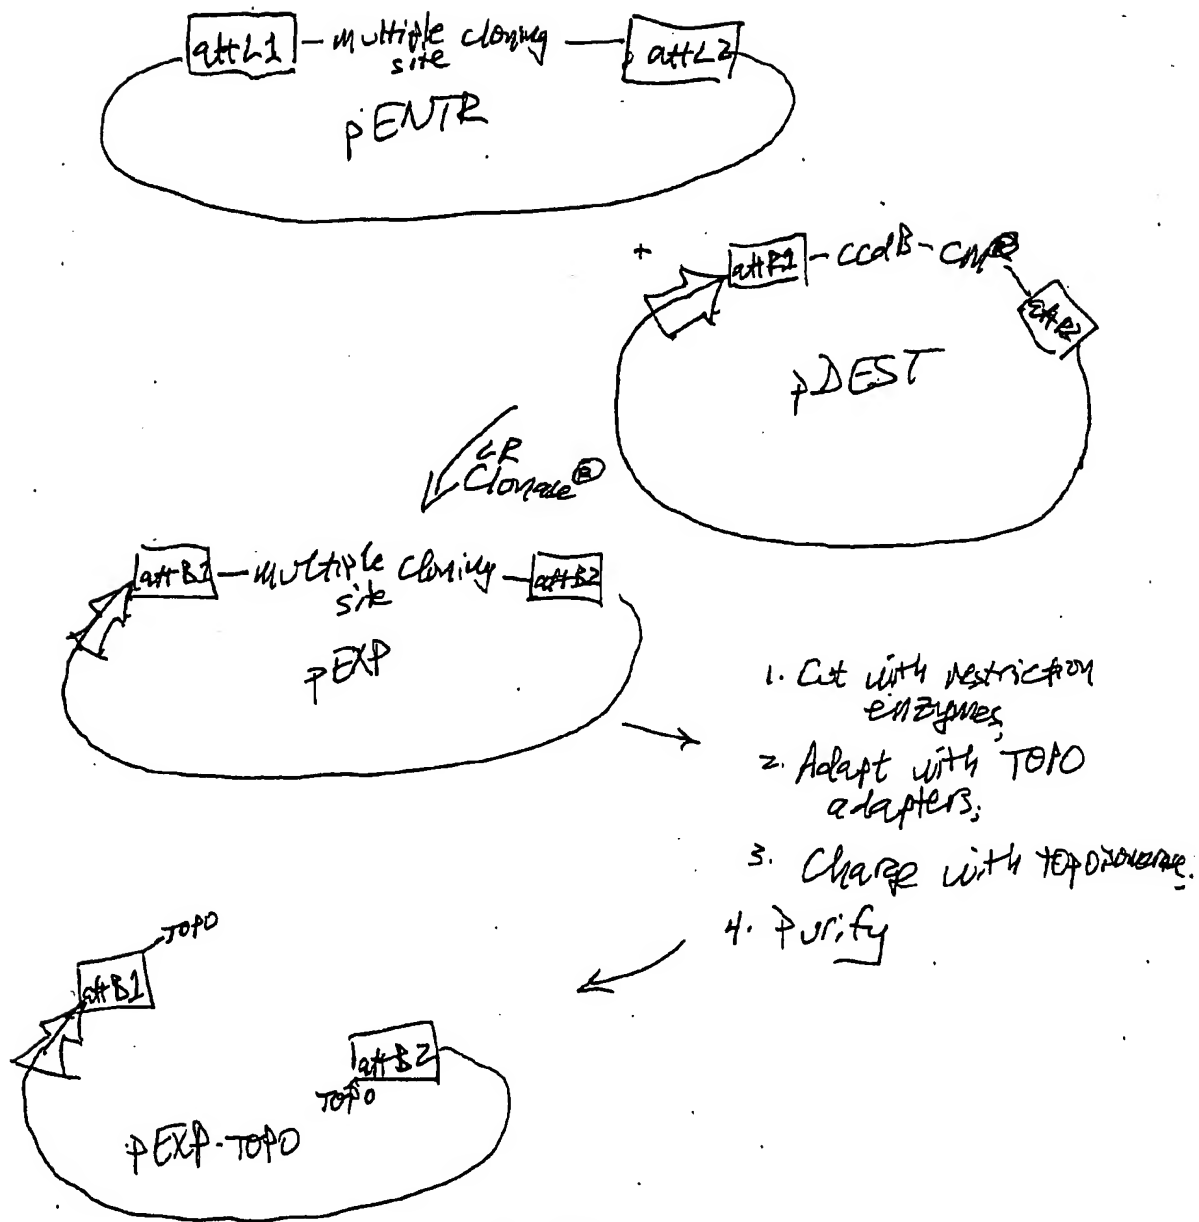 attL1 - multiple cloning site - attL2
pENTR
+
attR1 - ccdB - CmR
attR2
pDEST
LR
Clonase®
attB1 - multiple cloning site - attB2
pEXP
1. Cut with restriction
enzymes;
2. Adapt with TOPO
adapters;
3. Charge with topoisomerase.
4. Purify
TOPO
attB1
attB2
TOPO
pEXP-TOPO